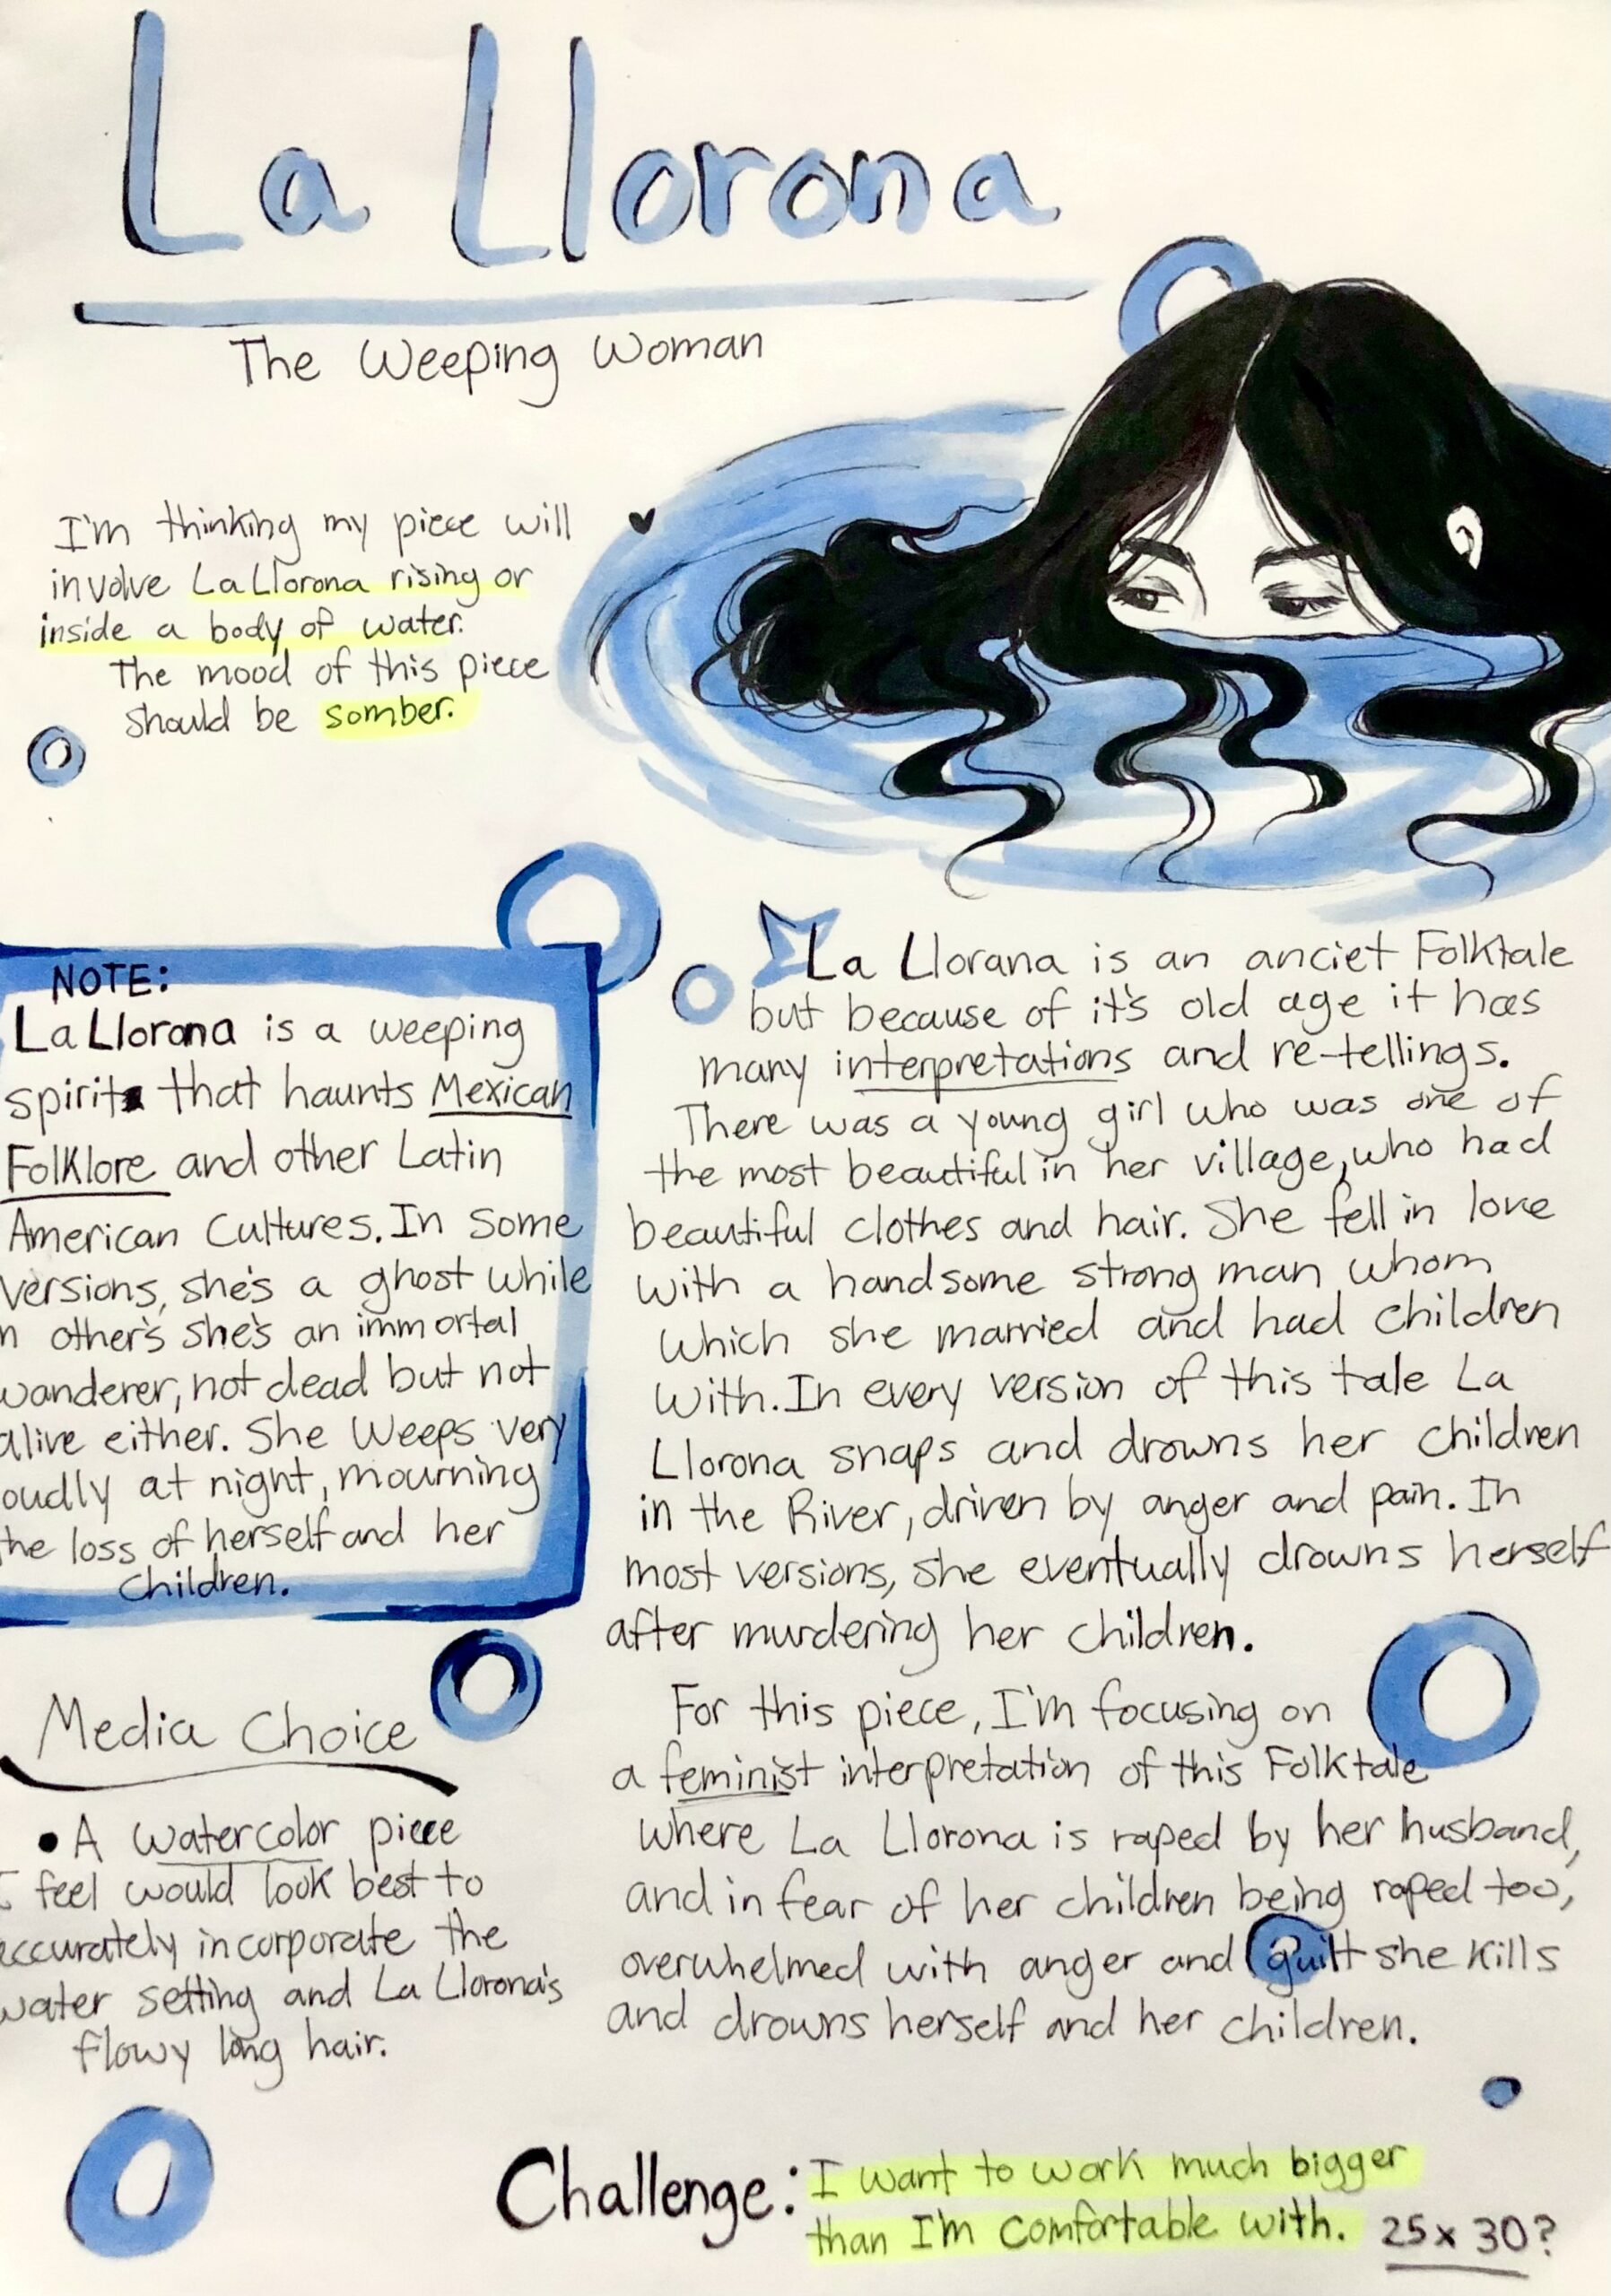 La Llorona
The Weeping Woman
I'm thinking my piece will
involve La Llorona rising or
inside a body of water.
The mood of this piece
should be somber.
NOTE:
La Llorona is a weeping
spirit that haunts Mexican
Folklore and other Latin
American Cultures. In some
versions, she's a ghost while
n other's she's an immortal
wanderer, not dead but not
alive either. She Weeps very
oudly at night, mourning
the loss of herself and her
children.
Media Choice
• A watercolor piece
I feel would look best to
accurately incorporate the
water setting and La Llorona's
flowy long hair.
La Llorana is an anciet Folktale
but because of it's old age it has
many interpretations and re-tellings.
There was a young girl who was one of
the most beautiful in her village, who had
beautiful clothes and hair. She fell in love
with a handsome strong man whom
which she married and had children
with. In every version of this tale La
Llorona snaps and drowns her children
in the River, driven by anger and pain. In
most versions, she eventually drowns herself
after murdering her children.
For this piece, I'm focusing on
a feminist interpretation of this Folktale
where La Llorona is raped by her husband,
and in fear of her children being raped too,
overwhelmed with anger and guilt she kills
and drowns herself and her children.
Challenge: I want to work much bigger
than I'm comfortable with. 25 x 30?